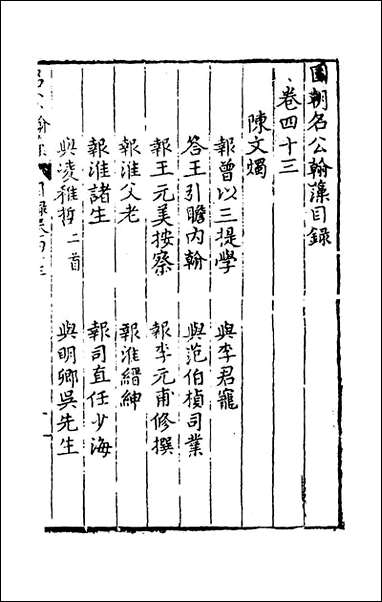 國朝名公翰藻目錄
卷四十三
陳文燭
報曾以三提學　與李君寵
答王引瞻內翰　與范伯楨司業
報王元美按察　報李元甫修撰
報淮父老　報淮縉紳
報淮諸生　報司直任少海
與凌稚哲二首　與明卿吳先生